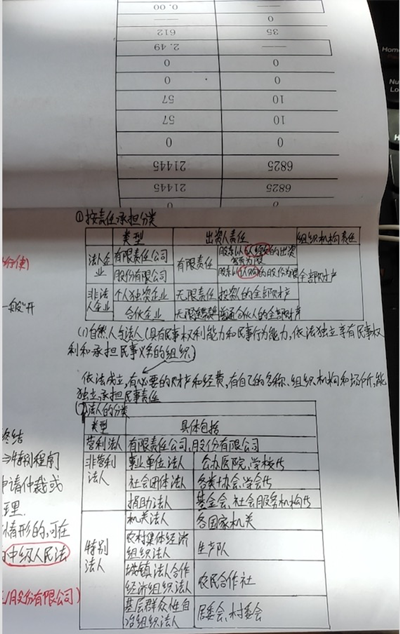 0.00
612
35
2.49
0
0
57
10
57
10
0
0
21445
6825
21445
6825
0
0
①按责任承担分类
类型 出资人责任 组织机构责任
法人企业 有限责任公司 有限责任
股份有限公司 全部财产
非法人企业 个人独资企业 无限责任 投资人的全部财产
合伙企业 普通合伙人的全部财产
(1)自然人与法人(具有民事权利能力和民事行为能力,依法独立享有民事权
利和承担民事义务的组织)
依法成立,有必要的财产和经费,有自己的名称、组织机构和场所,能
独立承担民事责任
法人的分类
类型 具体包括
营利法人 有限责任公司,股份有限公司
非营利法人 事业单位法人 公办医院,学校等
社会团体法人 各类协会,学会等
捐助法人 基金会,社会服务机构等
特别法人 机关法人 各国家机关
农村集体经济组织法人 生产队
城镇农村合作经济组织法人 农民合作社
基层群众性自治组织法人 居委会,村委会
终结
申请仲裁或
情形的,可在
中级人民法
股份有限公司)